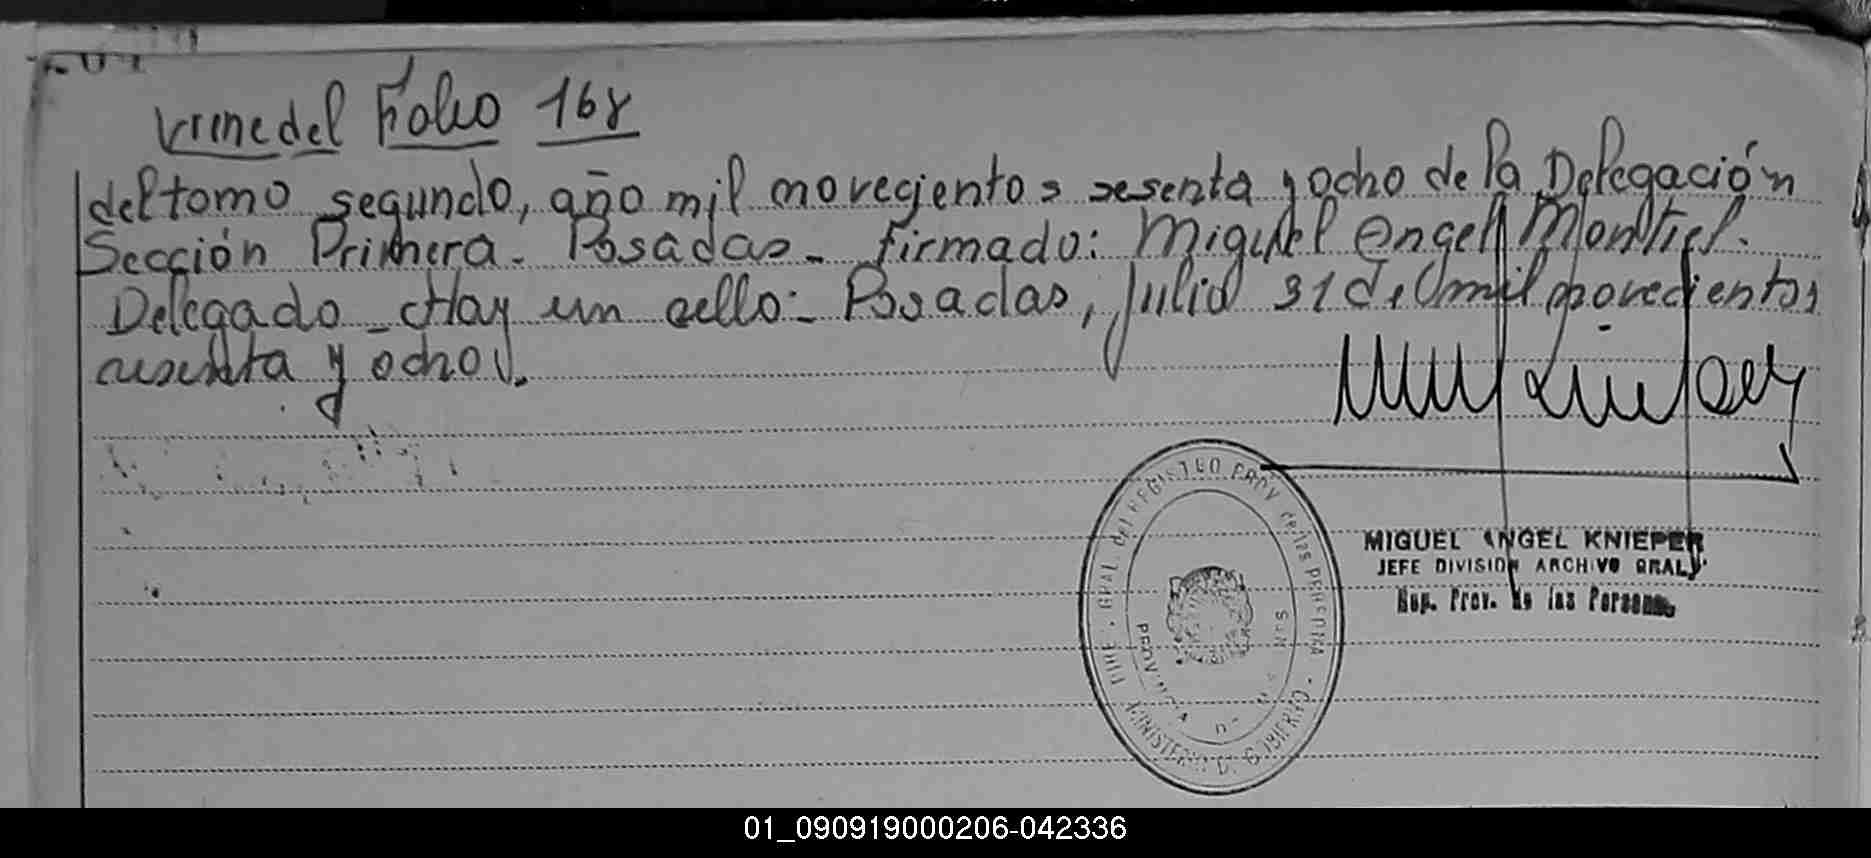 Viene del Folio 168
del tomo segundo, año mil novecientos sesenta y ocho de la Delegación
Sección Primera. Posadas. firmado: Miguel Angel Montiel.
Delegado - Hay un sello: Posadas, Julio 31 del mil novecientos
sesenta y ocho.
MIGUEL ANGEL KNIEPER
JEFE DIVISION ARCHIVO GRAL.
Rep. Prov. de las Personas
DIRE. GRAL. del REGISTRO PROV. de las PERSONAS
MINISTERIO DE GOBIERNO
01_090919000206-042336